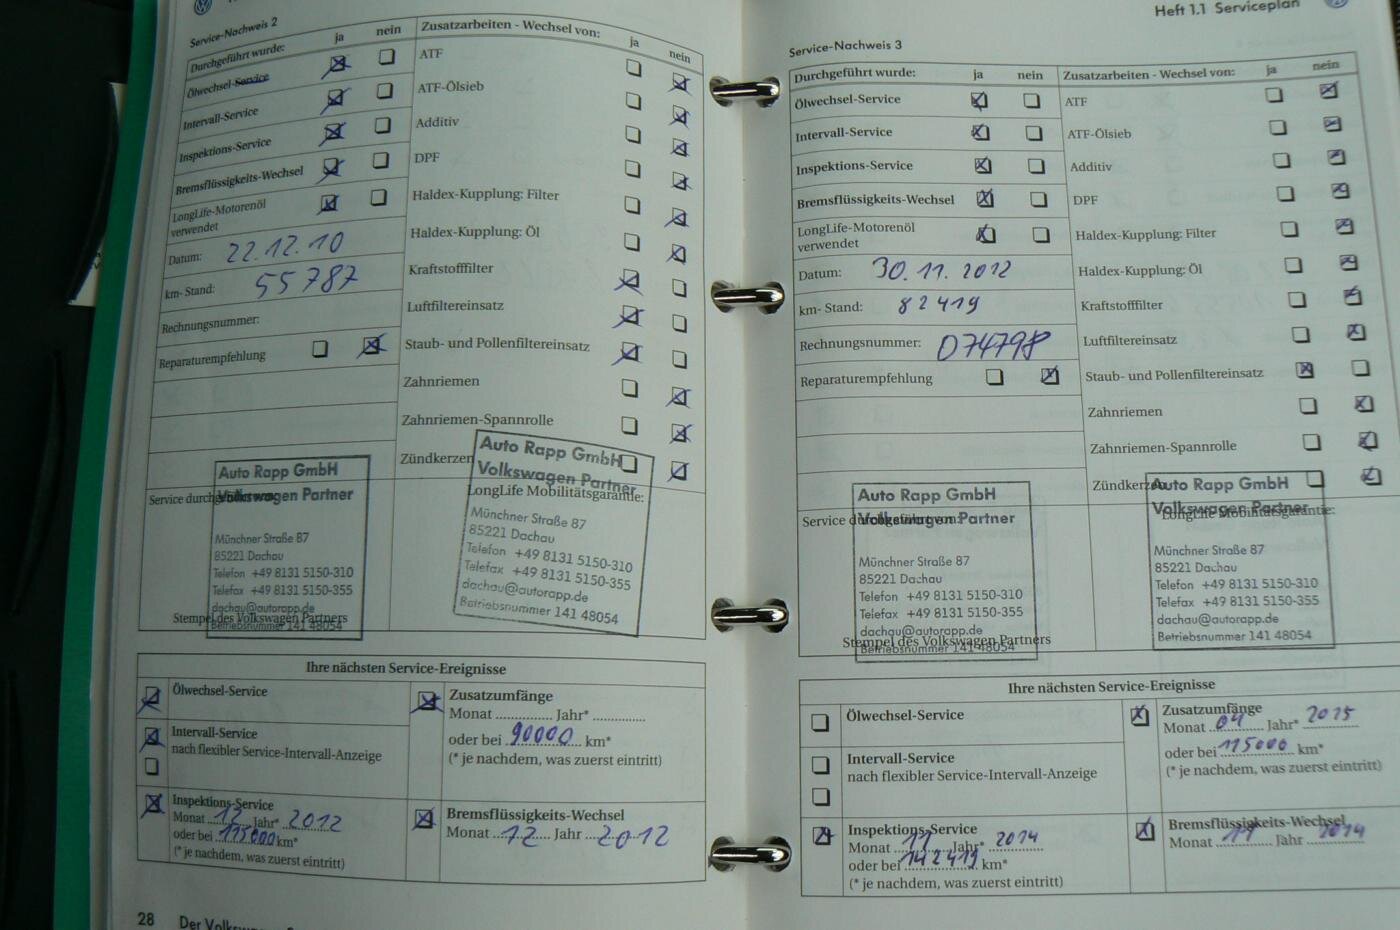 Service-Nachweis 2
Durchgeführt wurde: ja nein
Ölwechsel-Service
Intervall-Service
Inspektions-Service
Bremsflüssigkeits-Wechsel
LongLife-Motorenöl
verwendet
Datum: 22.12.10
km-Stand: 55787
Rechnungsnummer:
Reparaturempfehlung
Zusatzarbeiten - Wechsel von: ja nein
ATF
ATF-Ölsieb
Additiv
DPF
Haldex-Kupplung: Filter
Haldex-Kupplung: Öl
Kraftstofffilter
Luftfiltereinsatz
Staub- und Pollenfiltereinsatz
Zahnriemen
Zahnriemen-Spannrolle
Zündkerzen
Service durchgeführt von:
Auto Rapp GmbH
Volkswagen Partner
Münchner Straße 87
85221 Dachau
Telefon +49 8131 5150-310
Telefax +49 8131 5150-355
dachau@autorapp.de
Betriebsnummer 141 48054
Stempel des Volkswagen Partners
LongLife Mobilitätsgarantie:
Auto Rapp GmbH
Volkswagen Partner
Münchner Straße 87
85221 Dachau
Telefon +49 8131 5150-310
Telefax +49 8131 5150-355
dachau@autorapp.de
Betriebsnummer 141 48054
Ihre nächsten Service-Ereignisse
Ölwechsel-Service
Intervall-Service
nach flexibler Service-Intervall-Anzeige
Inspektions-Service
Monat 12 Jahr* 2012
oder bei 115000 km*
(* je nachdem, was zuerst eintritt)
Zusatzumfänge
Monat ............ Jahr* ............
oder bei 90000 km*
(* je nachdem, was zuerst eintritt)
Bremsflüssigkeits-Wechsel
Monat 12 Jahr 2012
28 Der
Heft 1.1 Serviceplan
Service-Nachweis 3
Durchgeführt wurde: ja nein
Ölwechsel-Service
Intervall-Service
Inspektions-Service
Bremsflüssigkeits-Wechsel
LongLife-Motorenöl
verwendet
Datum: 30.11.2012
km- Stand: 82419
Rechnungsnummer: 074798
Reparaturempfehlung
Zusatzarbeiten - Wechsel von: ja nein
ATF
ATF-Ölsieb
Additiv
DPF
Haldex-Kupplung: Filter
Haldex-Kupplung: Öl
Kraftstofffilter
Luftfiltereinsatz
Staub- und Pollenfiltereinsatz
Zahnriemen
Zahnriemen-Spannrolle
Zündkerzen
Service durchgeführt von:
Auto Rapp GmbH
Volkswagen Partner
Münchner Straße 87
85221 Dachau
Telefon +49 8131 5150-310
Telefax +49 8131 5150-355
dachau@autorapp.de
Betriebsnummer 141 48054
Stempel des Volkswagen Partners
LongLife Mobilitätsgarantie:
Auto Rapp GmbH
Volkswagen Partner
Münchner Straße 87
85221 Dachau
Telefon +49 8131 5150-310
Telefax +49 8131 5150-355
dachau@autorapp.de
Betriebsnummer 141 48054
Ihre nächsten Service-Ereignisse
Ölwechsel-Service
Intervall-Service
nach flexibler Service-Intervall-Anzeige
Inspektions-Service
Monat 11 Jahr* 2014
oder bei 142419 km*
(* je nachdem, was zuerst eintritt)
Zusatzumfänge
Monat 04 Jahr* 2015
oder bei 115000 km*
(* je nachdem, was zuerst eintritt)
Bremsflüssigkeits-Wechsel
Monat 11 Jahr 2014